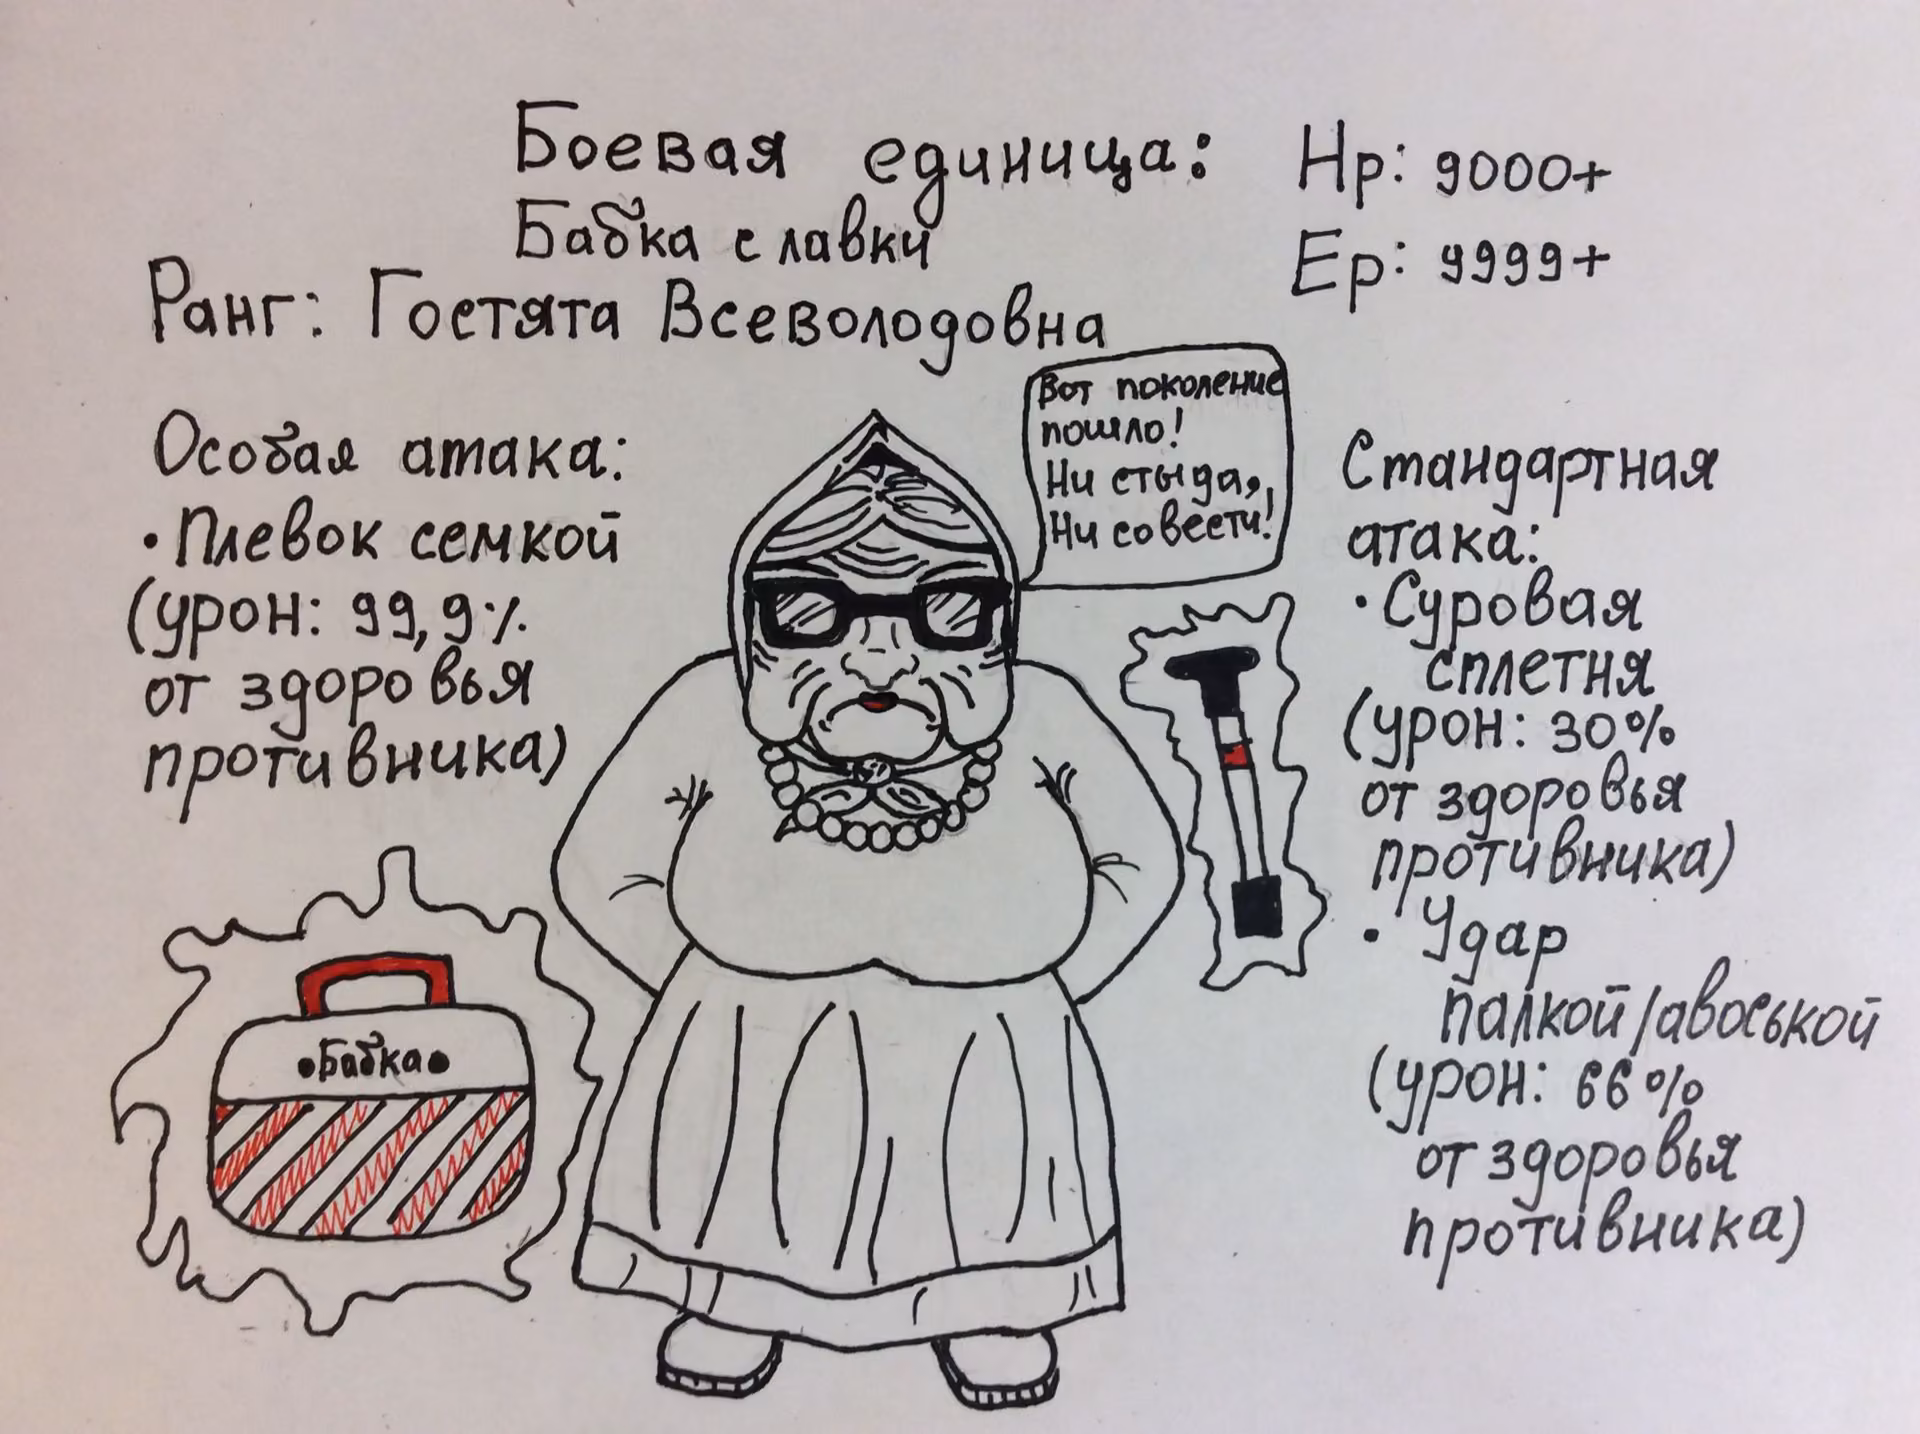 Боевая единица:
Бабка с лавки
Hp: 9000+
Ep: 9999+
Ранг: Гостята Всеволодовна
Вот поколение
пошло!
Ни стыда,
Ни совести!
Особая атака:
•Плевок семкой
(урон: 99,9%
от здоровья
противника)
Стандартная
атака:
•Суровая
сплетня
(урон: 30%
от здоровья
противника)
• Удар
палкой/авоськой
(урон: 66%
от здоровья
противника)
•Бабка•